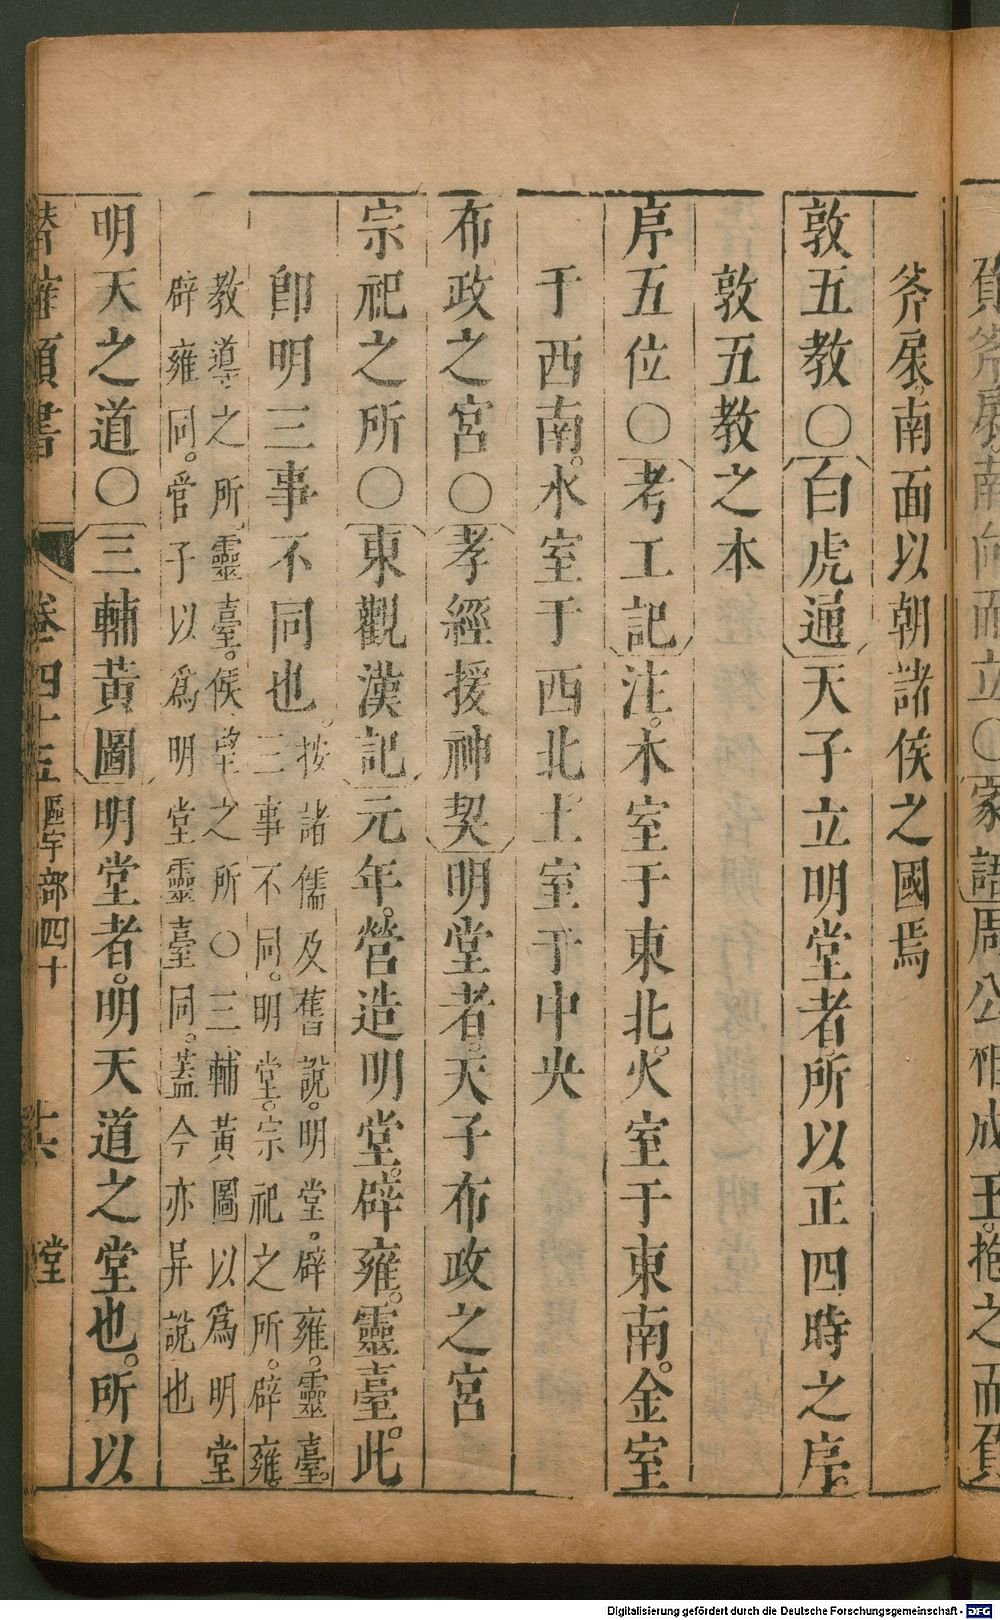 負斧扆南向而立〇家語周公相成王抱之而負
斧扆南面以朝諸侯之國焉
敦五教〇白虎通天子立明堂者所以正四時之序
敦五教之本
序五位〇考工記注木室于東北火室于東南金室
于西南水室于西北土室于中央
布政之宮〇孝經援神契明堂者天子布政之宮
宗祀之所〇東觀漢記元年營造明堂辟雍靈臺此
即明三事不同也按諸儒及舊說明堂辟雍靈臺
三事不同明堂宗祀之所辟雍
教導之所靈臺候望之所〇三輔黃圖以爲明堂
辟雍同管子以爲明堂靈臺同蓋今亦异說也
明天之道〇三輔黃圖明堂者明天道之堂也所以
潛確類書 卷四十五 區宇部四十 十六 堂
Digitalisierung gefördert durch die Deutsche Forschungsgemeinschaft - DFG